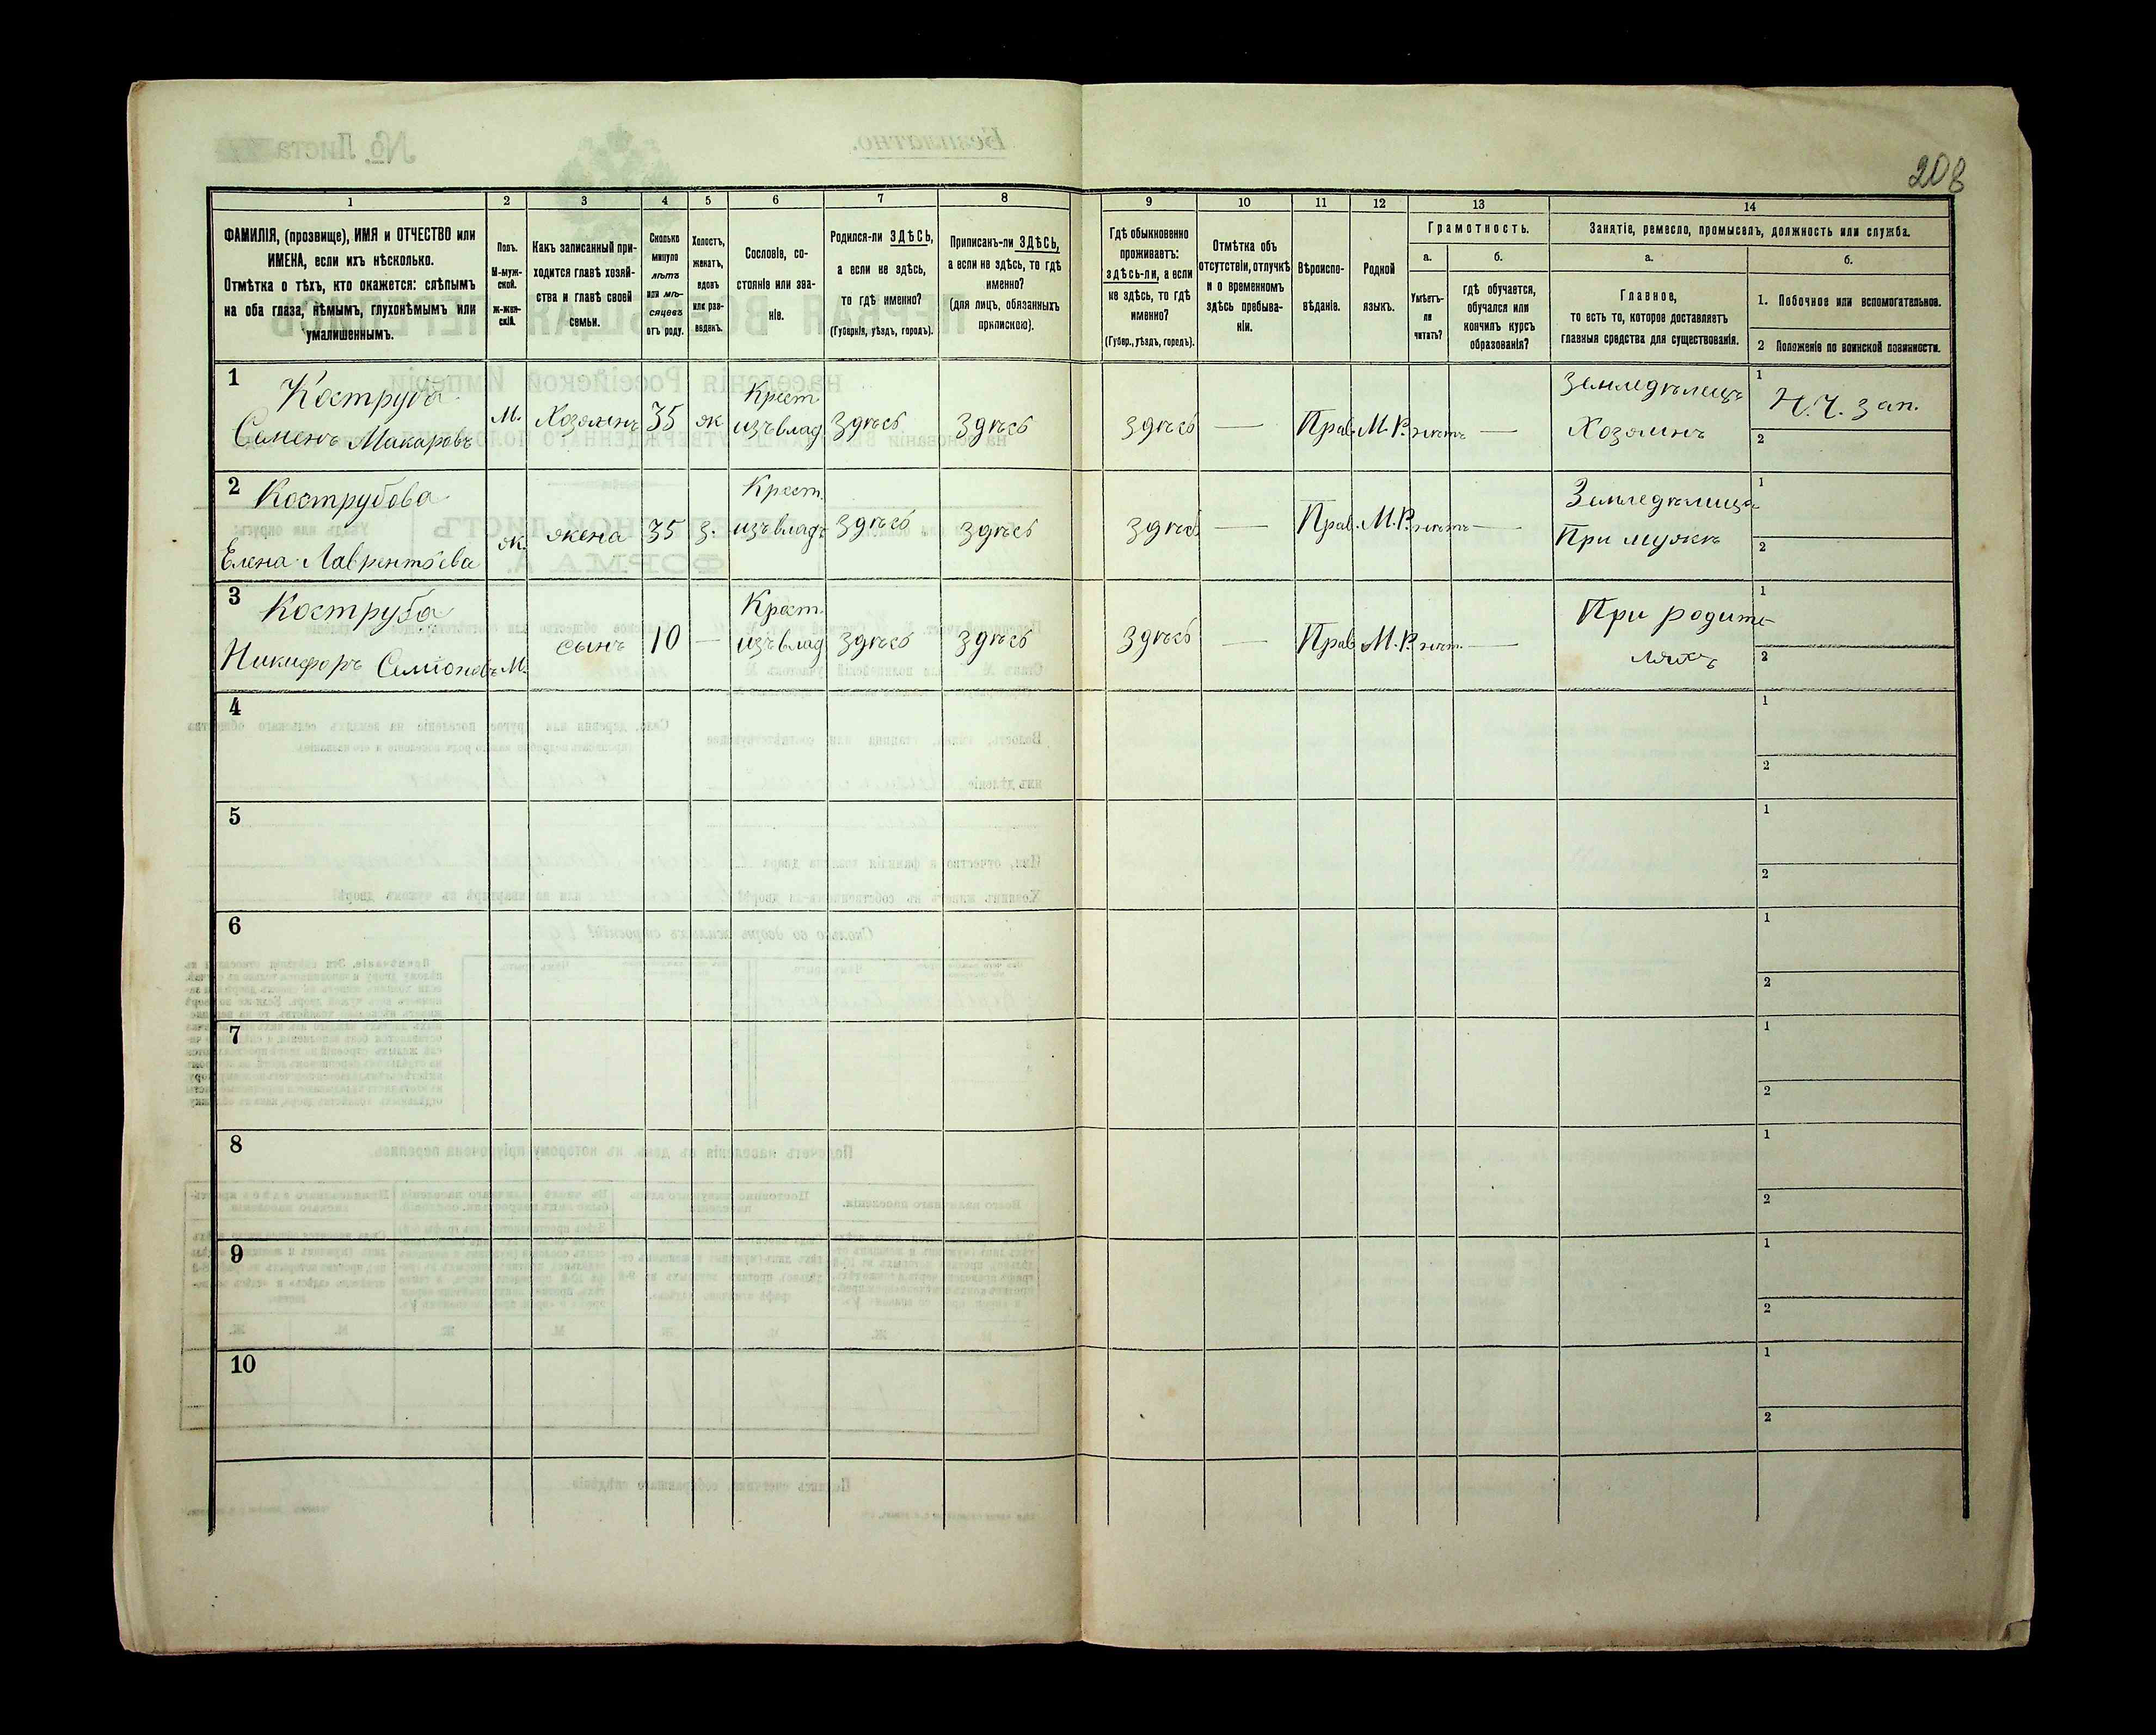 208
1 2 3 4 5 6 7 8 9 10 11 12 13 14
ФАМИЛІЯ, (прозвище), ИМЯ и ОТЧЕСТВО или
ИМЕНА, если ихъ нѣсколько.
Отмѣтка о тѣхъ, кто окажется: слѣпымъ
на оба глаза, нѣмымъ, глухонѣмымъ или
умалишеннымъ.
Полъ.
М-муж-
ской.
ж-жен-
скій.
Какъ записанный при-
ходится главѣ хозяй-
ства и главѣ своей
семьи.
Сколько
минуло
лѣтъ
или мѣ-
сяцевъ
отъ роду.
Холостъ,
женатъ,
вдовъ
или раз-
веденъ.
Сословіе, со-
стояніе или зва-
ніе.
Родился-ли ЗДѢСЬ,
а если не здѣсь,
то гдѣ именно?
(Губернія, уѣздъ, городъ).
Приписанъ-ли ЗДѢСЬ,
а если не здѣсь, то гдѣ
именно?
(для лицъ, обязанныхъ
припискою).
Гдѣ обыкновенно
проживаетъ:
здѣсь-ли, а если
не здѣсь, то гдѣ
именно?
(Губер., уѣздъ, городъ).
Отмѣтка объ
отсутствіи, отлучкѣ
и о временномъ
здѣсь пребыва-
ніи.
Вѣроиспо-
вѣданіе.
Родной
языкъ.
Грамотность.
а.
Умѣетъ-
ли
читать?
б.
гдѣ обучается,
обучался или
кончилъ курсъ
образованія?
Занятіе, ремесло, промыселъ, должность или служба.
а.
Главное,
то есть то, которое доставляетъ
главныя средства для существованія.
б.
1. Побочное или вспомогательное.
2 Положеніе по воинской повинности.
1
Коструба
Семенъ Макаровъ
М.
Хозяинъ
35
ж
Крест.
изъ влад
Здѣсь
Здѣсь
Здѣсь
—
Прав.
М.Р.
нѣтъ
—
Земледѣлецъ
Хозяинъ
1
Н.Ч. зап.
2
2
Кострубова
Елена Лаврентьева
ж.
жена
35
з.
Крест.
изъ влад
Здѣсь
Здѣсь
Здѣсь
—
Прав.
М.Р.
нѣтъ
—
Земледѣлица
При мужѣ
1
2
3
Коструба
Никифоръ Семіоновъ
М.
сынъ
10
—
Крест.
изъ влад
Здѣсь
Здѣсь
Здѣсь
—
Прав
М.Р.
нѣт.
—
При родите-
ляхъ
1
2
4
1
2
5
1
2
6
1
2
7
1
2
8
1
2
9
1
2
10
1
2